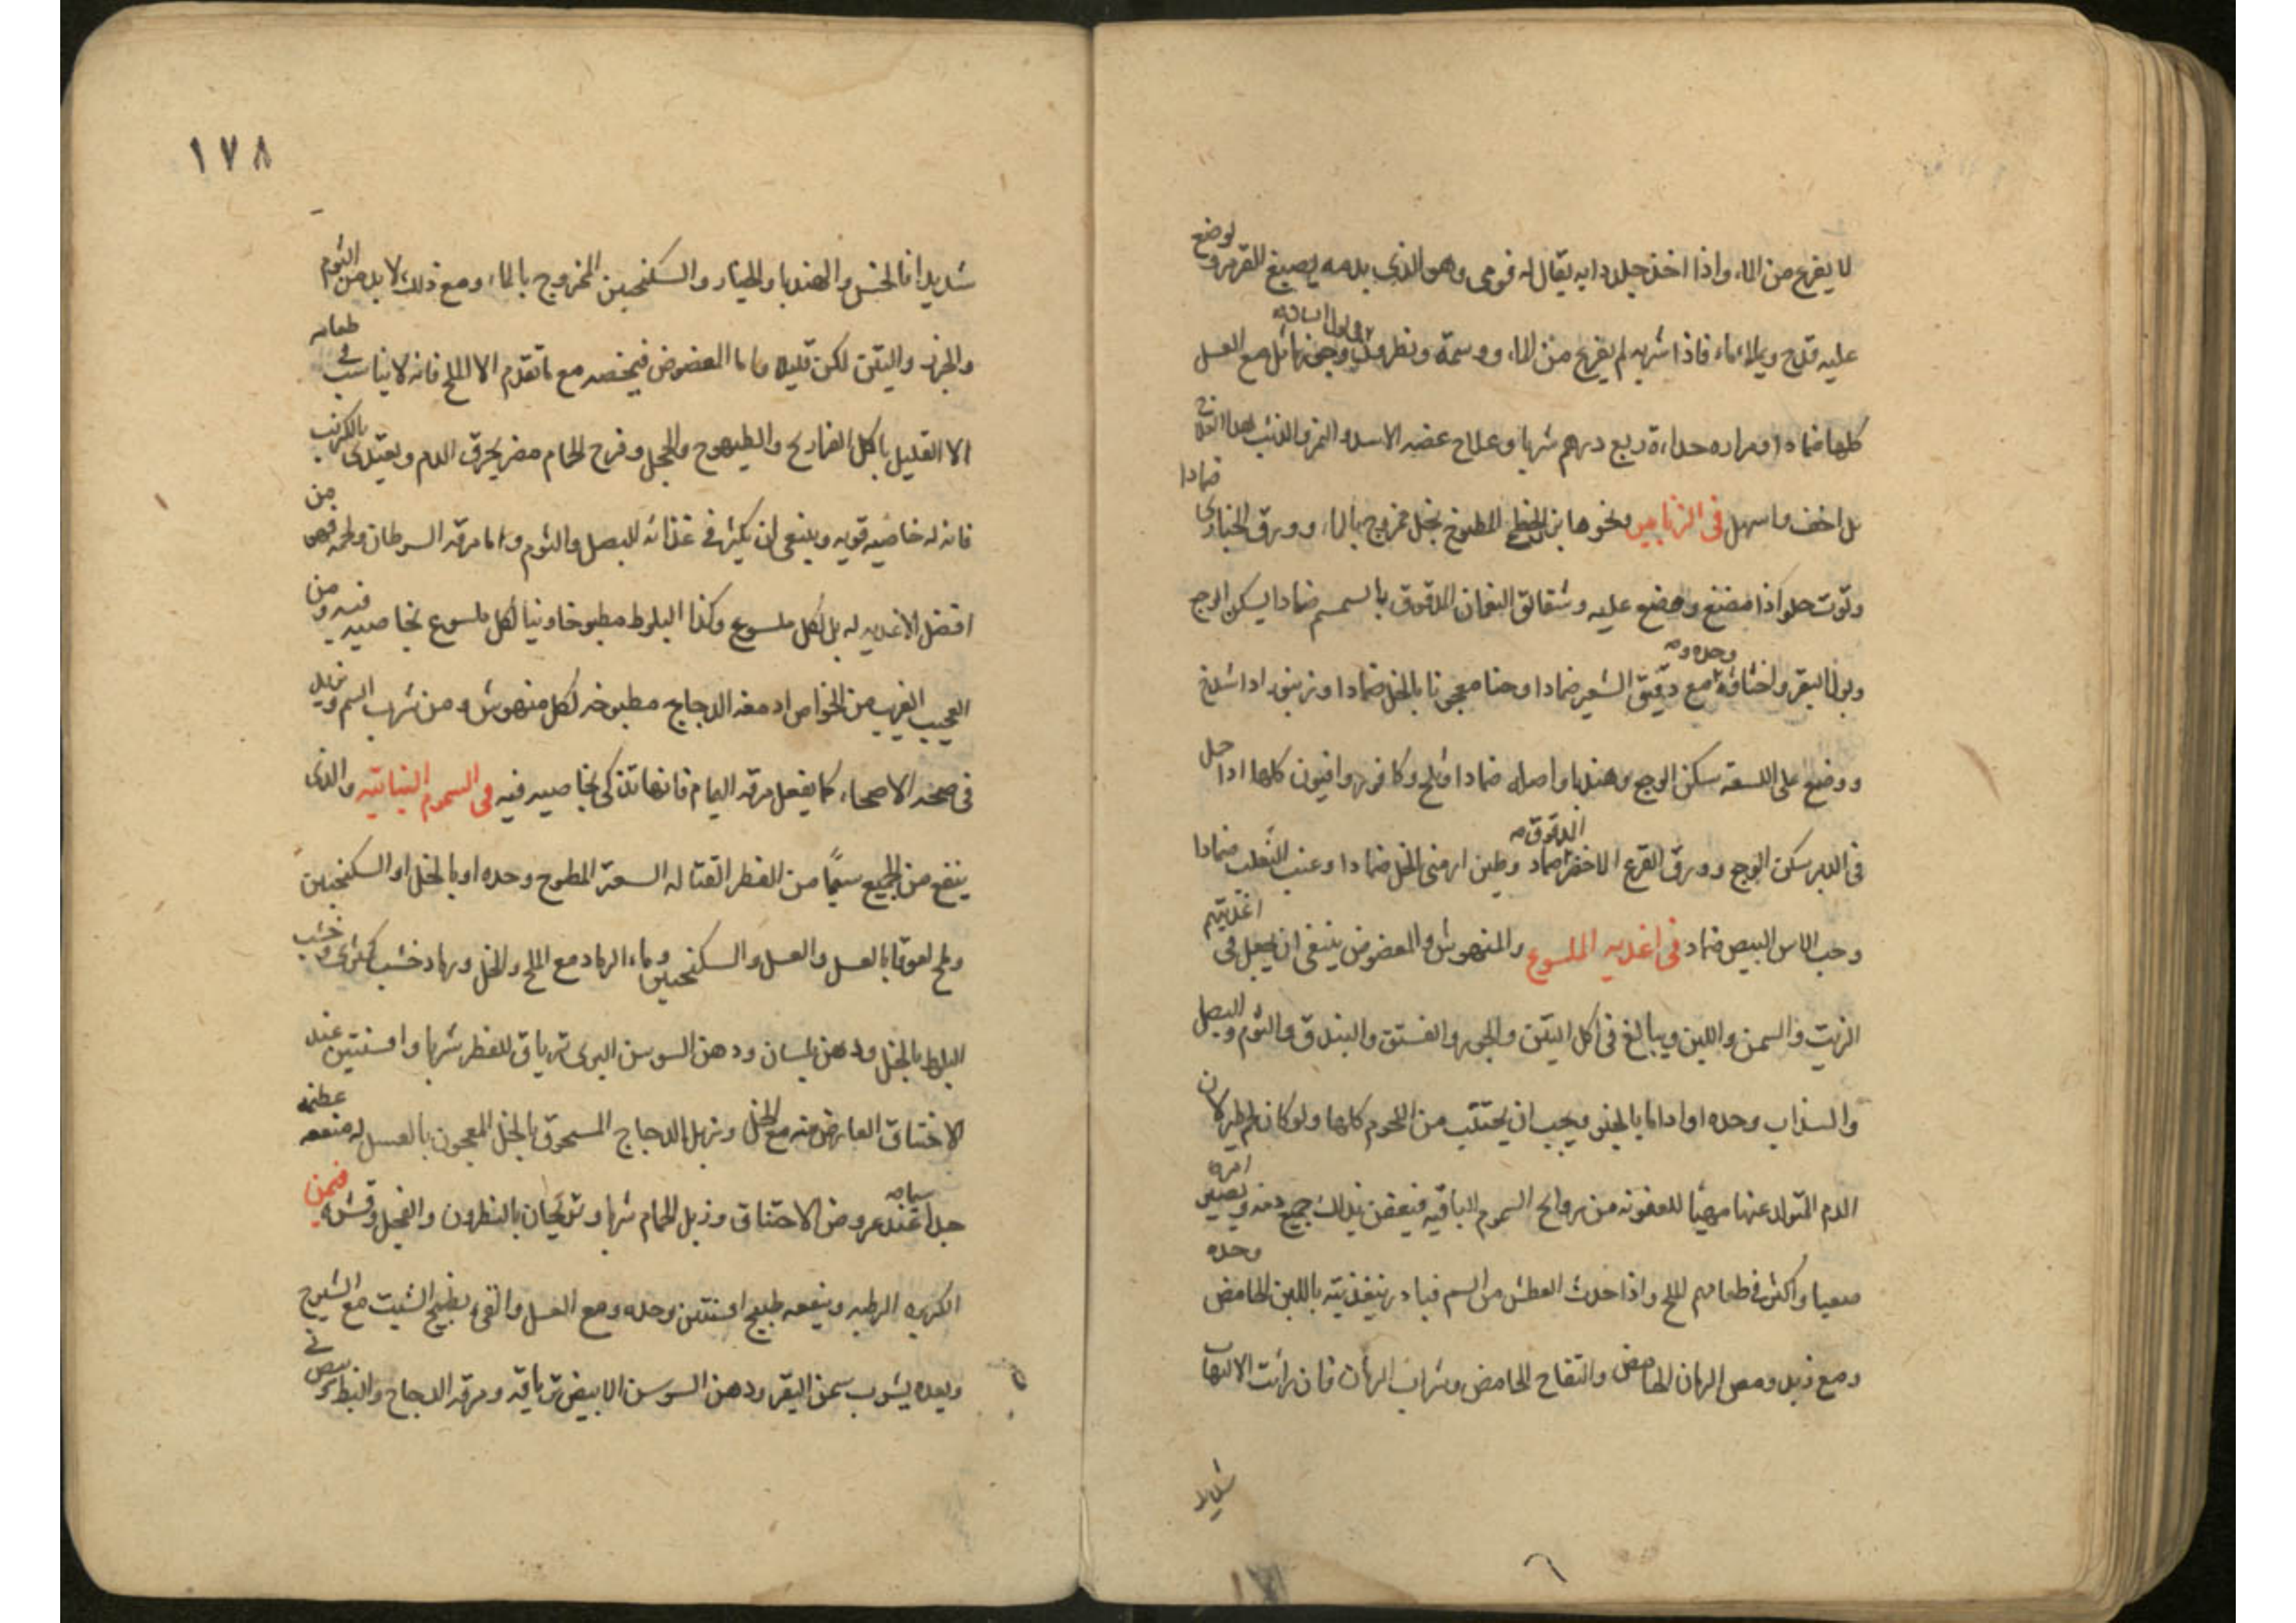 لا يفزع من الماء واذا اخذ جلد دابه يقال له قومى وهو الذى بدمه يصبغ القرمز ووضع
عليه قدح ويملاء ماء فاذا شربه لم يفزع من الماء ووسمة ونطرون وجوز ماثل مع العسل
كلها ضمادا ومراره حداءة ربع درهم شربا وعلاج عضه الاسد والنمر والذئب
بل اخف واسهل فى الزنابير ونحوها المطبوخ بخل ممزوج بالماء وورق الخبازى ضمادا
وتوت حلو اذا مضغ ووضع عليه وشقائق النعمان المدقوق بالسمسم ضمادا يسكن الوجع
وبول البقر واخثاؤه وحده ومع دقيق الشعير ضمادا وحنا معجونا بالخل ضمادا وزنبور اذا شدخ
ووضع على اللسعة سكن الوجع وهندبا واصله ضمادا وثلج وكافور وافيون كلها اذا حل
فى الدبر سكن الوجع وورق القرع الاخضر المدقوق ضماد وطين ارمنى بالخل ضمادا وعنب الثعلب ضمادا
وحب الاس البيض ضماد فى اغذيه الملسوع والمنهوش والمعضوض ينبغى ان يجعل فى اغذيتهم
الزيت والسمن واللبن ويبالغ فى اكل التين والجوز والفستق والبندق والثوم والبصل
والسذاب وحده او اداما بالخبز ويجب ان يجتنب من اللحوم كلها ولو كان لحم طير لان
الدم المتولد عنها مهيئا للعفونه من روائح السموم الباقيه فيعفن بذلك جميع دمه ويصير امره
صعبا واكثر فى طعامهم الملح واذا حدث العطش من السم فبادر بتغذيته باللبن الحامض وحده
ومع زبد ومص الرمان الحامض والتفاح الحامض وشراب الرمان فان رايت الالتهاب
شديدا
١٧٨
شديدا فالخس والهندبا والخيار والسكنجبين الممزوج بالماء ومع ذلك لا بد من الثوم
والجوز والتين لكن قليلا واما المعضوض فيخصه مع ما تقدم الا الملح فانه لا يناسب فى طعامه
الا القليل باكل الفراريج والطيهوج والحجل وفرخ الحمام مضر يحرق الدم ويغتذى بالكرنب
فانه له خاصيه قويه وينبغى ان يكثر فى غذائه للبصل والثوم واما مرقه السرطان ولحمه فهو من
افضل الاغذيه له بل لكل ملسوع وكذا البلوط مطبوخا ونيا لكل ملسوع بخاصيه فيه ومن
العجيب الغريب من الخواص ادمغه الدجاج مطبوخه لكل منهوش ومن شرب السم ويزيد
فى صحه الاصحاء كما يفعل مرقه اليمام فانها تذكى بخاصيه فيه فى السموم النباتيه والذى
ينفع من الجميع سيما من الفطر القتاله السعتر المطبوخ وحده او بالخل او السكنجبين
وملح لعوقا بالعسل والعسل والسكنجبين وماء الرماد مع الملح والخل ورماد خشب كمثرى وخشب
البلوط بالخل ودهن بلسان ودهن السوسن البرى ترياق للفطر شربا وافسنتين عند
الاختناق العارض منه مع الخل وزبل الدجاج المسحوق بالخل المعجون بالعسل له منفعه عظيمه
جدا سيما عند عروض الاختناق وزبل الحمام شربا بالنطرون والفجل وقشره فمن
الكزبره الرطبه وينفعه طبيخ افسنتين وحده ومع العسل والقى بطبيخ الشبت مع الشيرج
وبعده يشرب سمن البقر ودهن السوسن الابيض ترياقه ومرقه الدجاج والبط